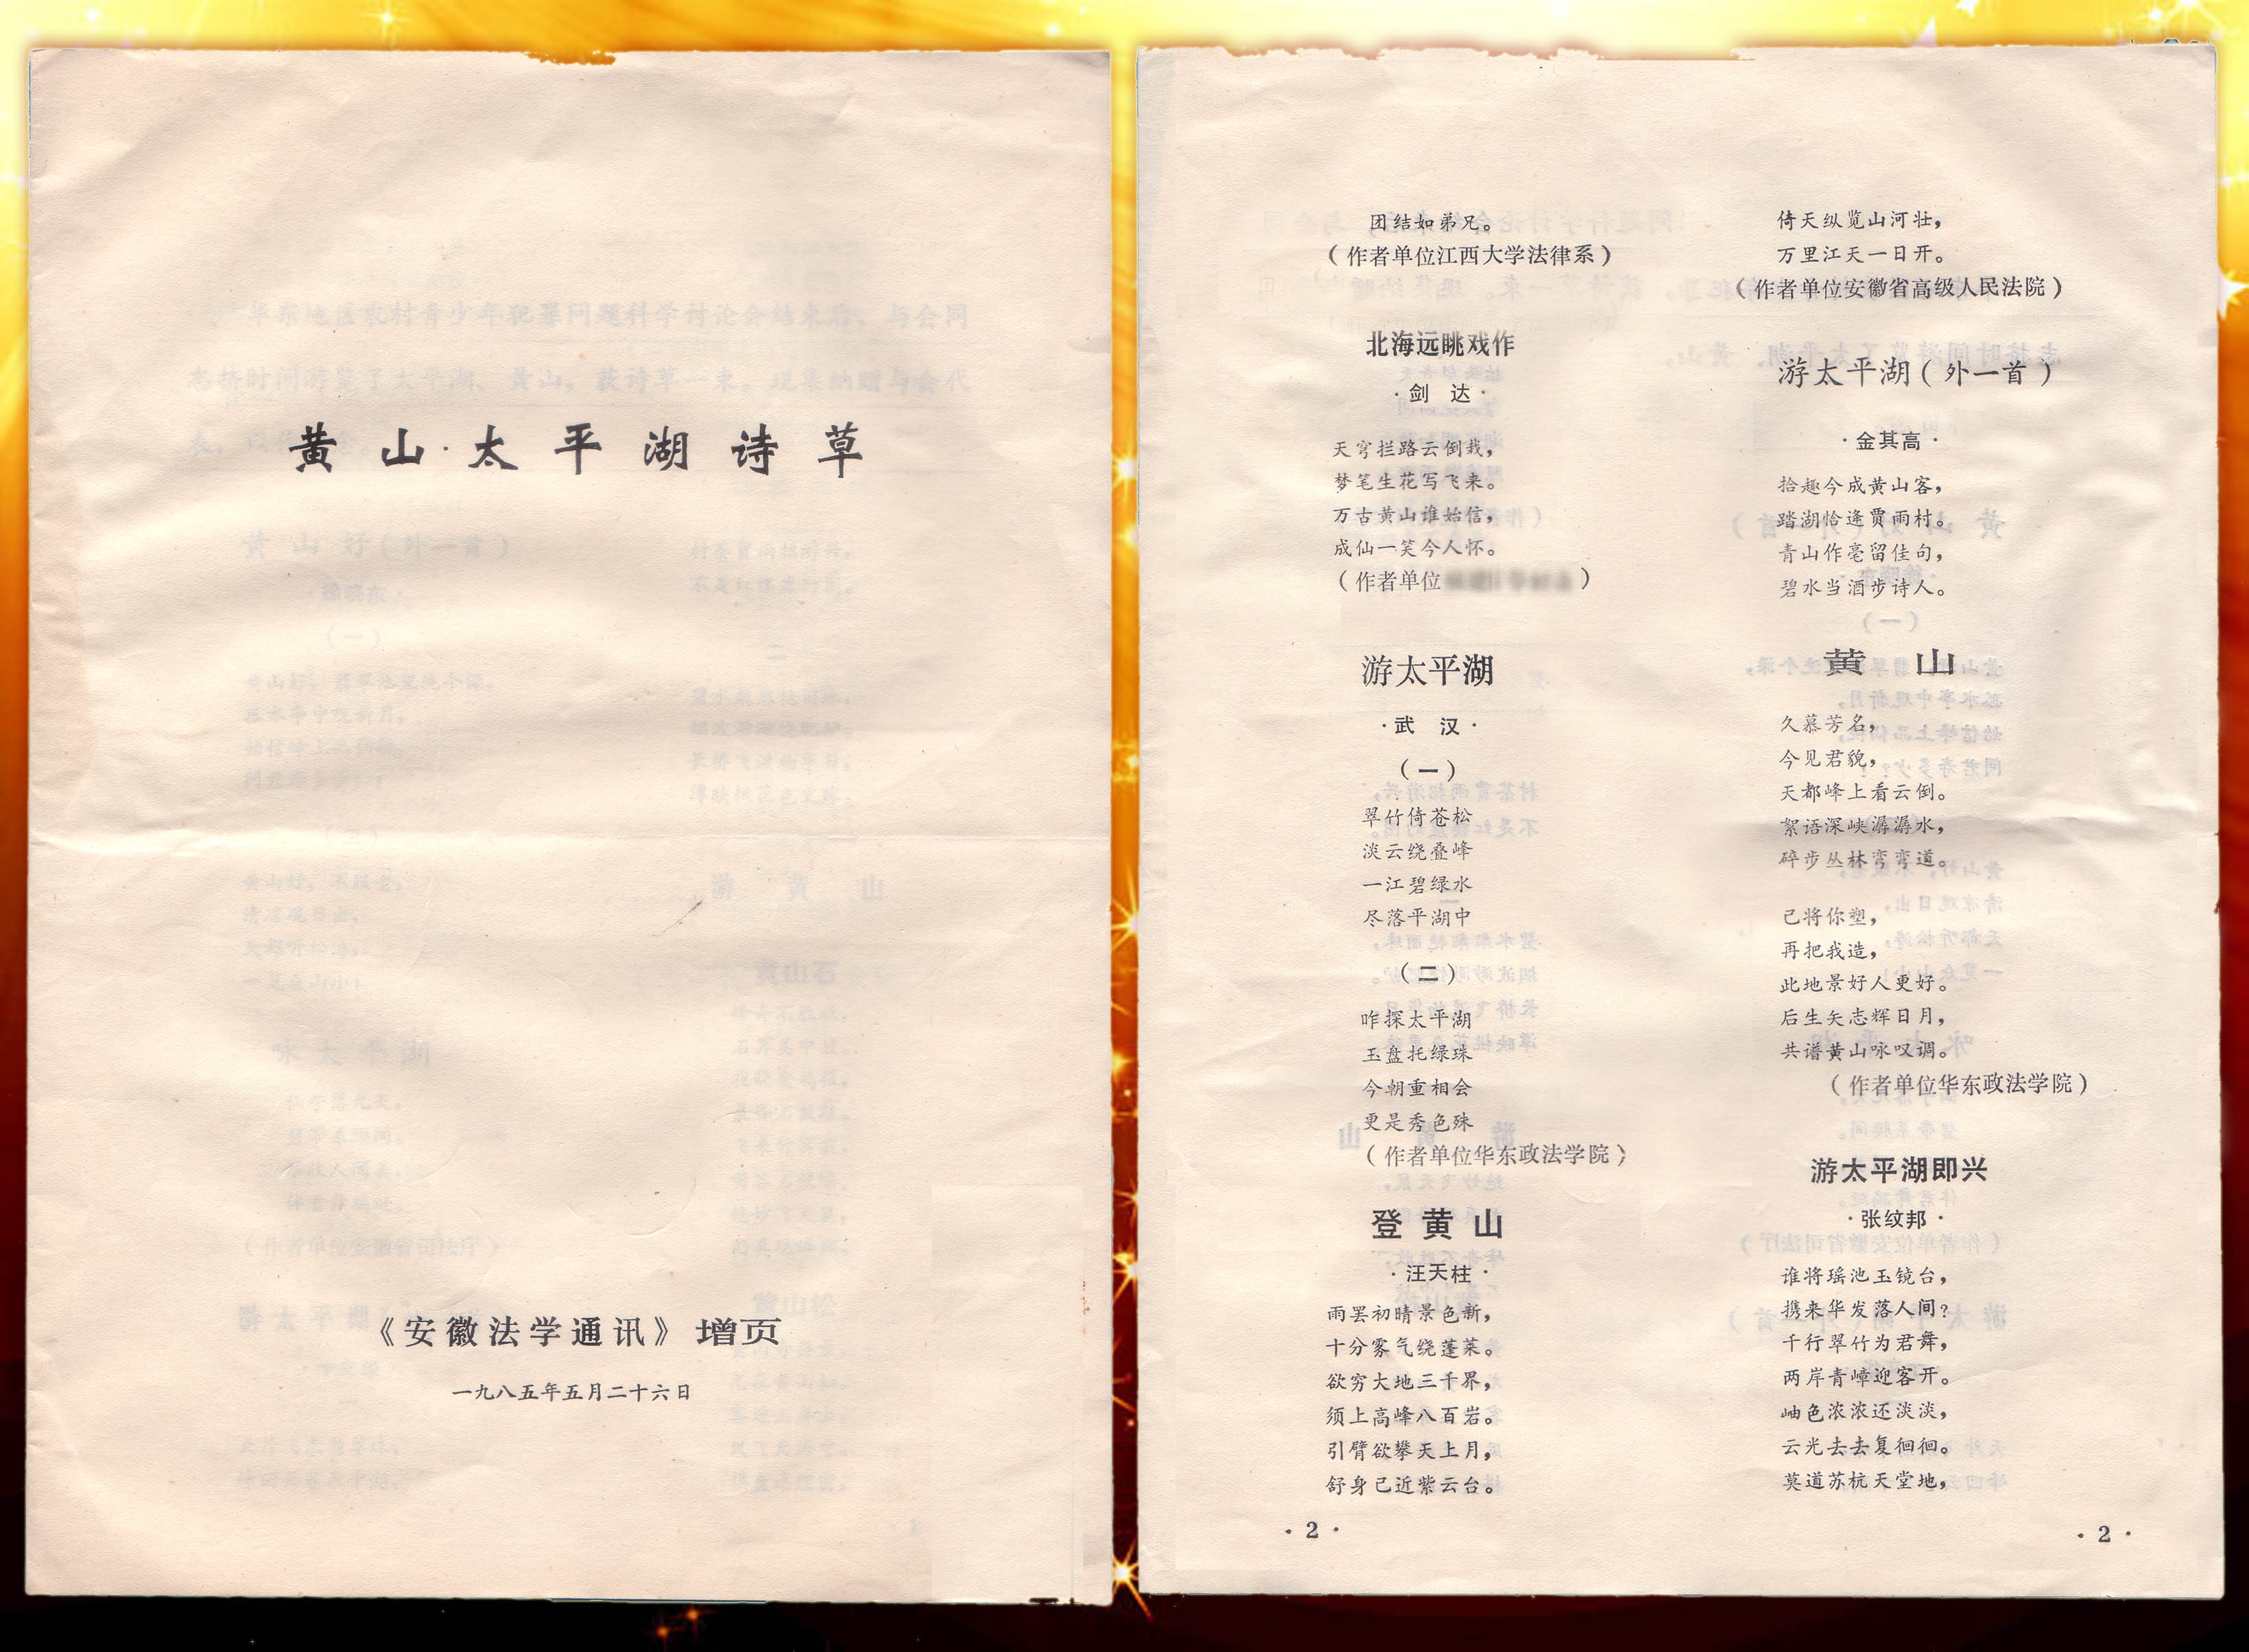 黄山·太平湖诗草
《安徽法学通讯》增页
一九八五年五月二十六日
团结如弟兄。
（作者单位江西大学法律系）
北海远眺戏作
·剑 达·
天穹拦路云倒栽，
梦笔生花写飞来。
万古黄山谁始信，
成仙一笑今人怀。
（作者单位 ）
游太平湖
·武 汉·
（一）
翠竹倚苍松
淡云绕叠峰
一江碧绿水
尽落平湖中
（二）
昨探太平湖
玉盘托绿珠
今朝重相会
更是秀色殊
（作者单位华东政法学院）
登黄山
·汪天柱·
雨罢初晴景色新，
十分雾气绕蓬莱。
欲穷大地三千界，
须上高峰八百岩。
引臂欲攀天上月，
舒身已近紫云台。
·2·
倚天纵览山河壮，
万里江天一日开。
（作者单位安徽省高级人民法院）
游太平湖（外一首）
·金其高·
拾趣今成黄山客，
踏湖恰逢贾雨村。
青山作毫留佳句，
碧水当酒步诗人。
黄 山
久慕芳名，
今见君貌，
天都峰上看云倒。
絮语深峡潺潺水，
碎步丛林弯弯道。
已将你塑，
再把我造，
此地景好人更好。
后生矢志辉日月，
共谱黄山咏叹调。
（作者单位华东政法学院）
游太平湖即兴
·张纹邦·
谁将瑶池玉镜台，
携来华发落人间？
千行翠竹为君舞，
两岸青嶂迎客开。
岫色浓浓还淡淡，
云光去去复徊徊。
莫道苏杭天堂地，
·2·